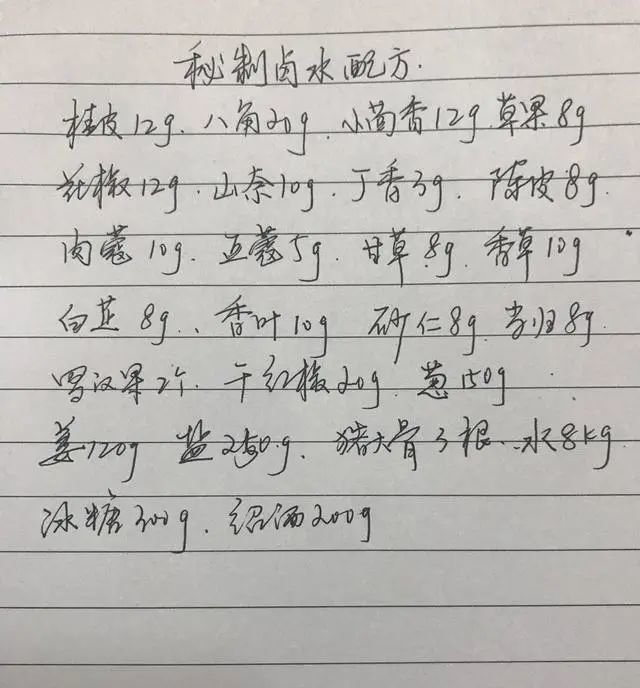 秘制卤水配方.
桂皮12g、八角20g、小茴香12g、草果8g
花椒12g、山奈10g、丁香3g、陈皮8g
肉蔻10g、豆蔻5g、甘草8g、香草10g
白芷8g、香叶10g 砂仁8g、当归8g
罗汉果2个、干红椒20g、葱150g
姜120g 盐250g、猪大骨3根、水8kg
冰糖300g、绍酒200g